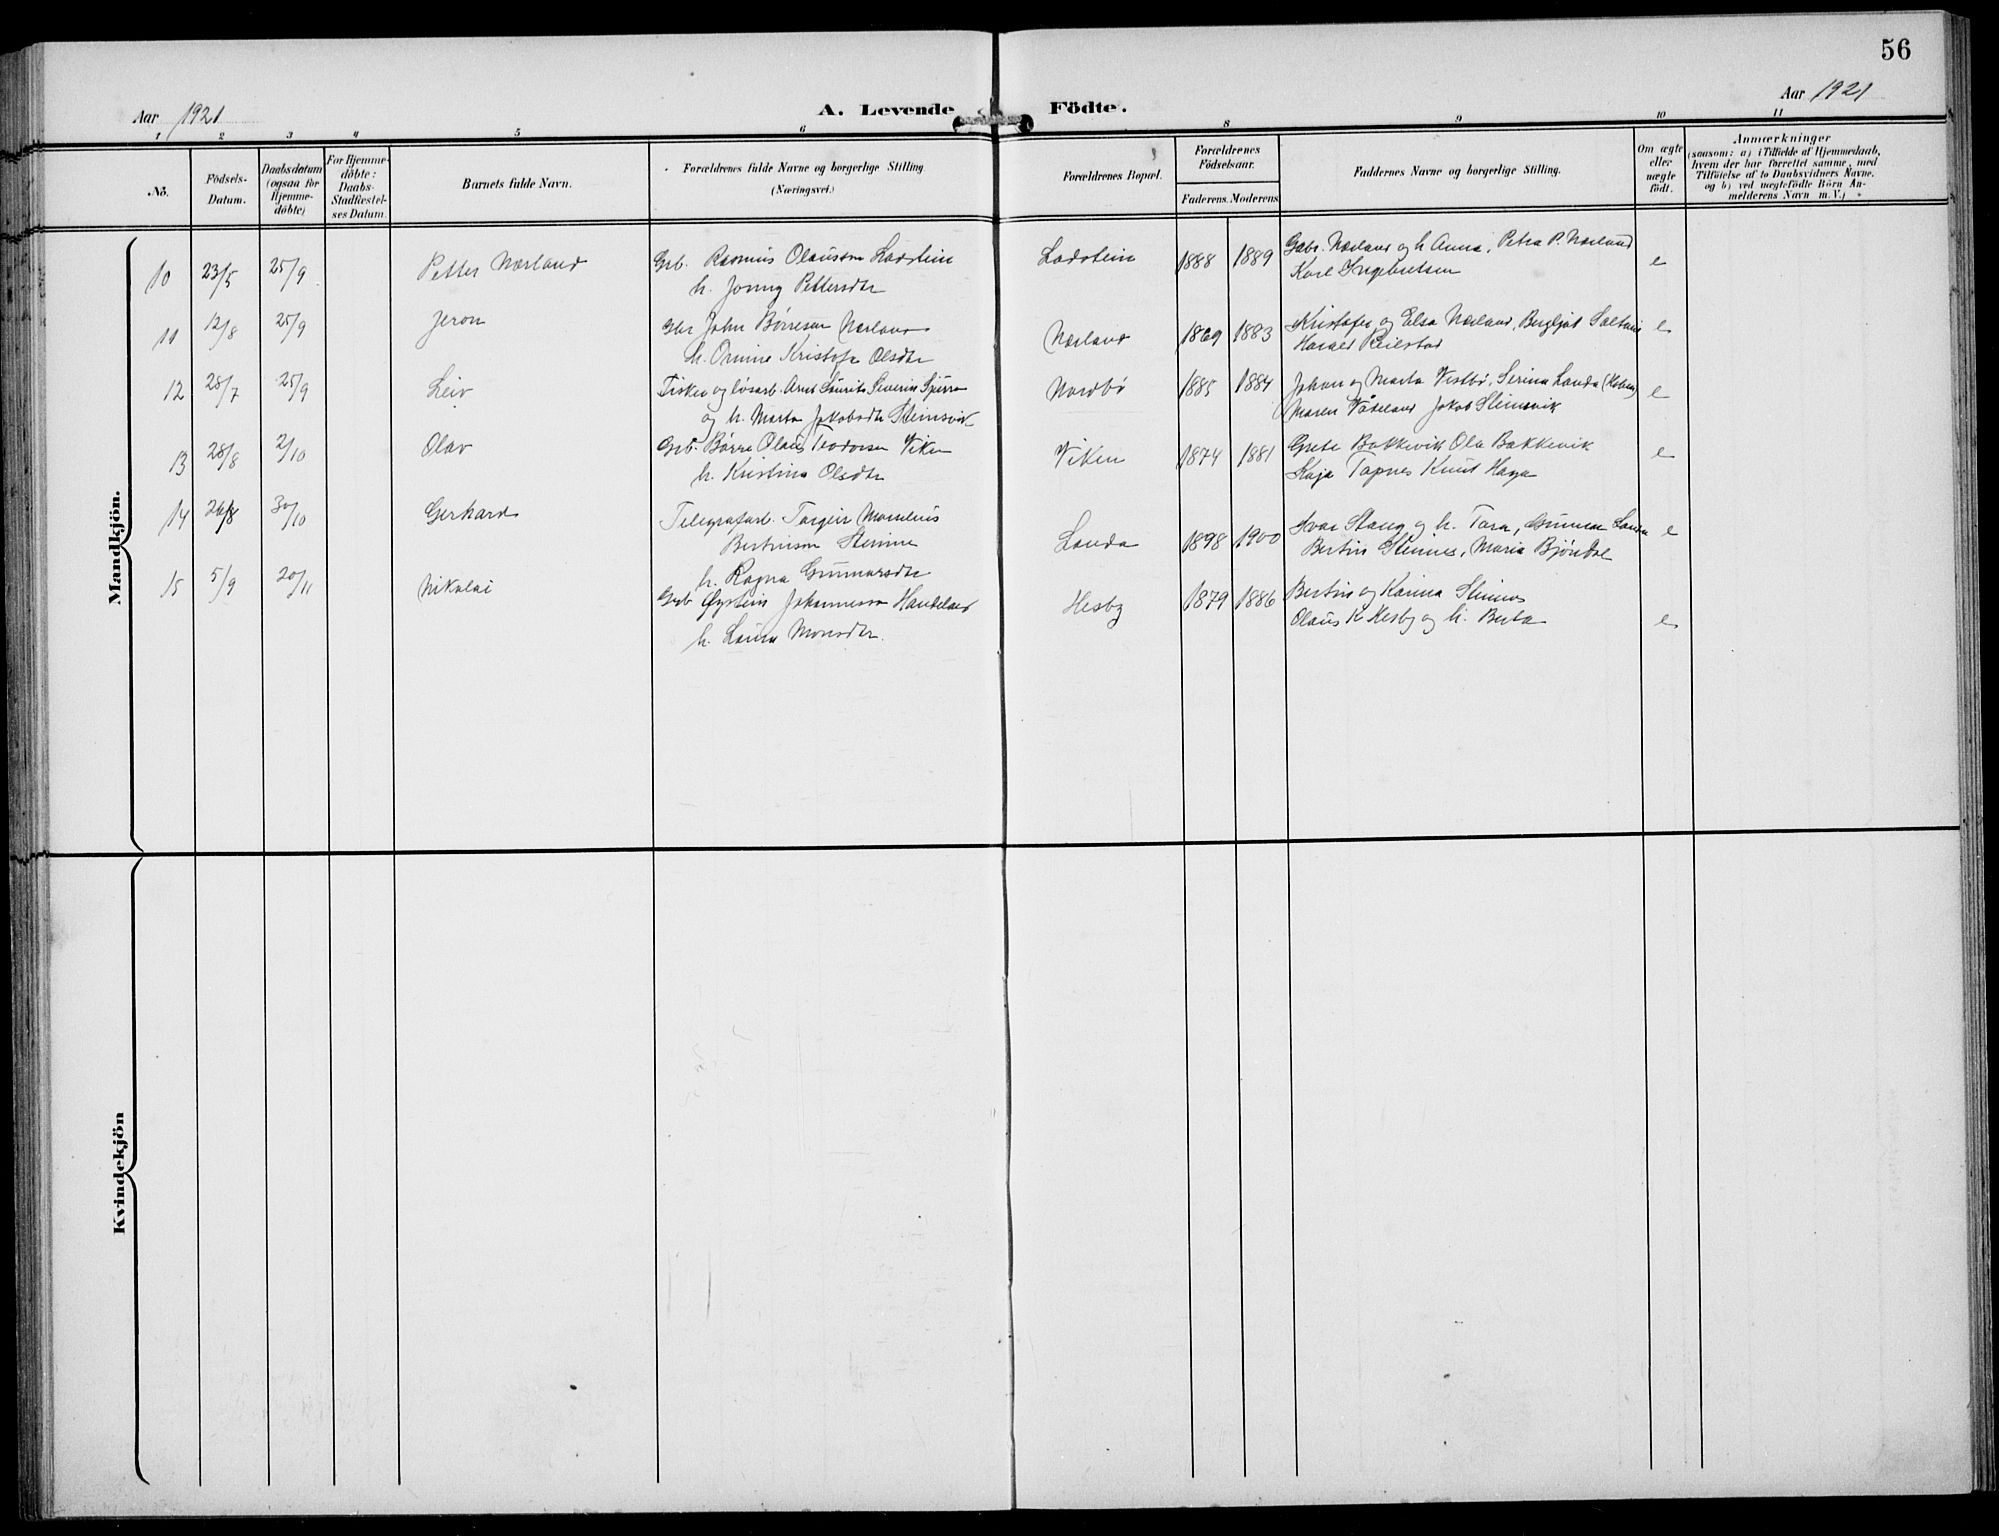 56
Aar 1921
A. Levende Födte.
Aar 1921
1 2 3 4 5 6 8 9 10 11
No.
Födsels-Datum.
Daabsdatum (ogsaa for Hjemme-döbte)
For Hjemme-döbte: Daabs-Stadfæstel-ses Datum.
Barnets fulde Navn.
Forældrenes fulde Navne og borgerlige Stilling
(Næringsvei.)
Forældrenes Bopæl.
Forældrenes Födselsaar.
Faderens. Moderens
Faddernes Navne og borgerlige Stilling.
Om ægte eller uægte født.
Anmærkninger
(saasom: a) i Tilfælde af Hjemmedaab,
hvem der har forrettet samme, med
Tilföielse af to Daabsvidners Navne,
og b) ved uægtefödte Börn An-
melderens Navn m. V.)
Mandkjön.
10 23/5 25/9 Petter Nærland Grb. Rasmus Olausson Ladstein Ladstein 1888 1889 Gabr. Nærland og h. Anna, Petra P. Nærland e
h. Jonny Pettersdtr Karl Ingebretsen
11 12/8 25/9 Jeron Gbr John Børresen Nærland Nærland 1869 1883 Kristofer og Elsa Nærland, Bergljot e
h. Omine Kristofa Olsdtr Harald Reilstad
12 28/7 25/9 Leiv Fisker og løsarb. Arnt Severin Nordbø 1885 1884 Johan og Marta Vestbø, Serina Landa e
og h. Marta Jakobsdtr Steinsvik Maren Vådeland Jakob Steinsvik
13 28/8 2/10 Olav Grb. Børre Olaus Teodorsen Viken Viken 1874 1881 Grete Bakkevik Ola Bakkevik e
h. Kristina Olsdtr Kaja Tapnes Knut Haga
14 26/8 30/10 Gerhard Telegrafarb. Torgeir Landa 1898 1900 Ivar Stang og h. Tora, Gunnar Landa e
Bertinson Steinnes Bertin Steinnes, Maria Bjøndal
h. Ragna Gunnarsdtr
15 5/9 20/11 Nikolai Grb Øystein Johannesson Handeland Hesby 1879 1886 Bertin og Karina Steinnes
h. Laura Monsdtr. Olaus K Hesby og h. Berta e
Kvindekjön